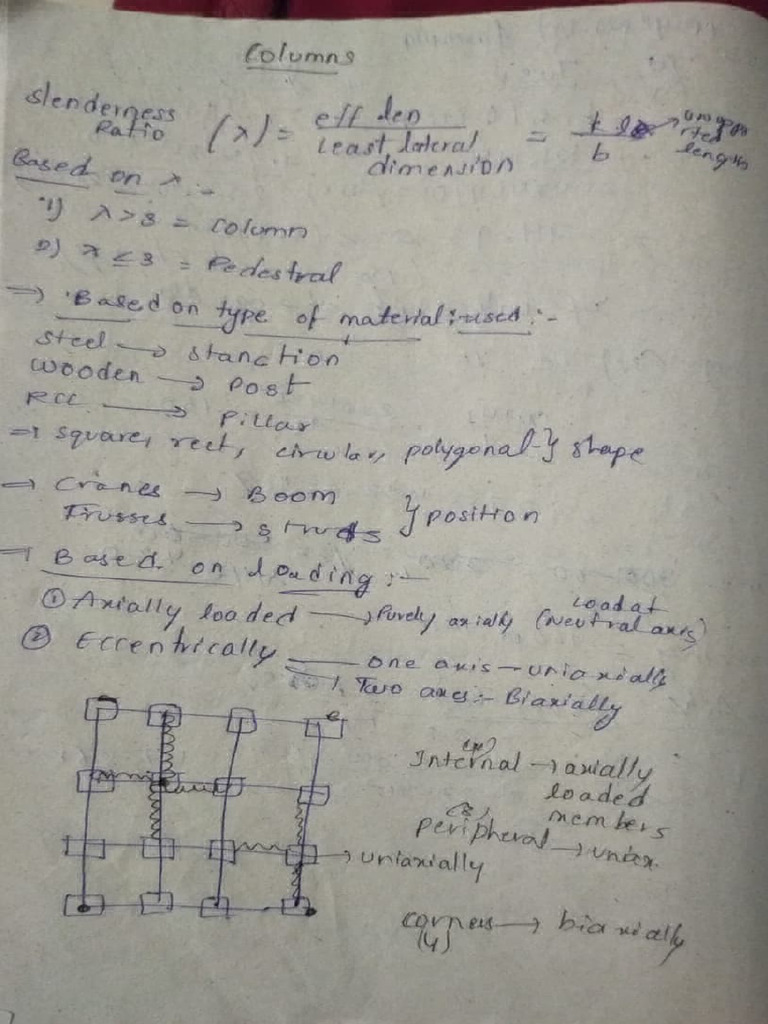 Columns
Slenderness Ratio (λ) = eff len / Least lateral dimension = k l / b → length
Based on λ :-
1) λ > 3 = column
2) λ ≤ 3 = Pedestral
→ Based on type of material used :-
Steel → stanction
Wooden → Post
RCC → Pillar
⇒ square, rect, circular, polygonal } shape
→ Cranes → Boom
Trusses → struts } position
→ Based on loading :-
① Axially loaded → Purely axially (Load at Neutral axis)
② Eccentrically — one axis – uniaxially
Two axes :- Biaxially
Internal → axially loaded members
peripheral → uniax.
→ uniaxially
corners (4) → biaxially